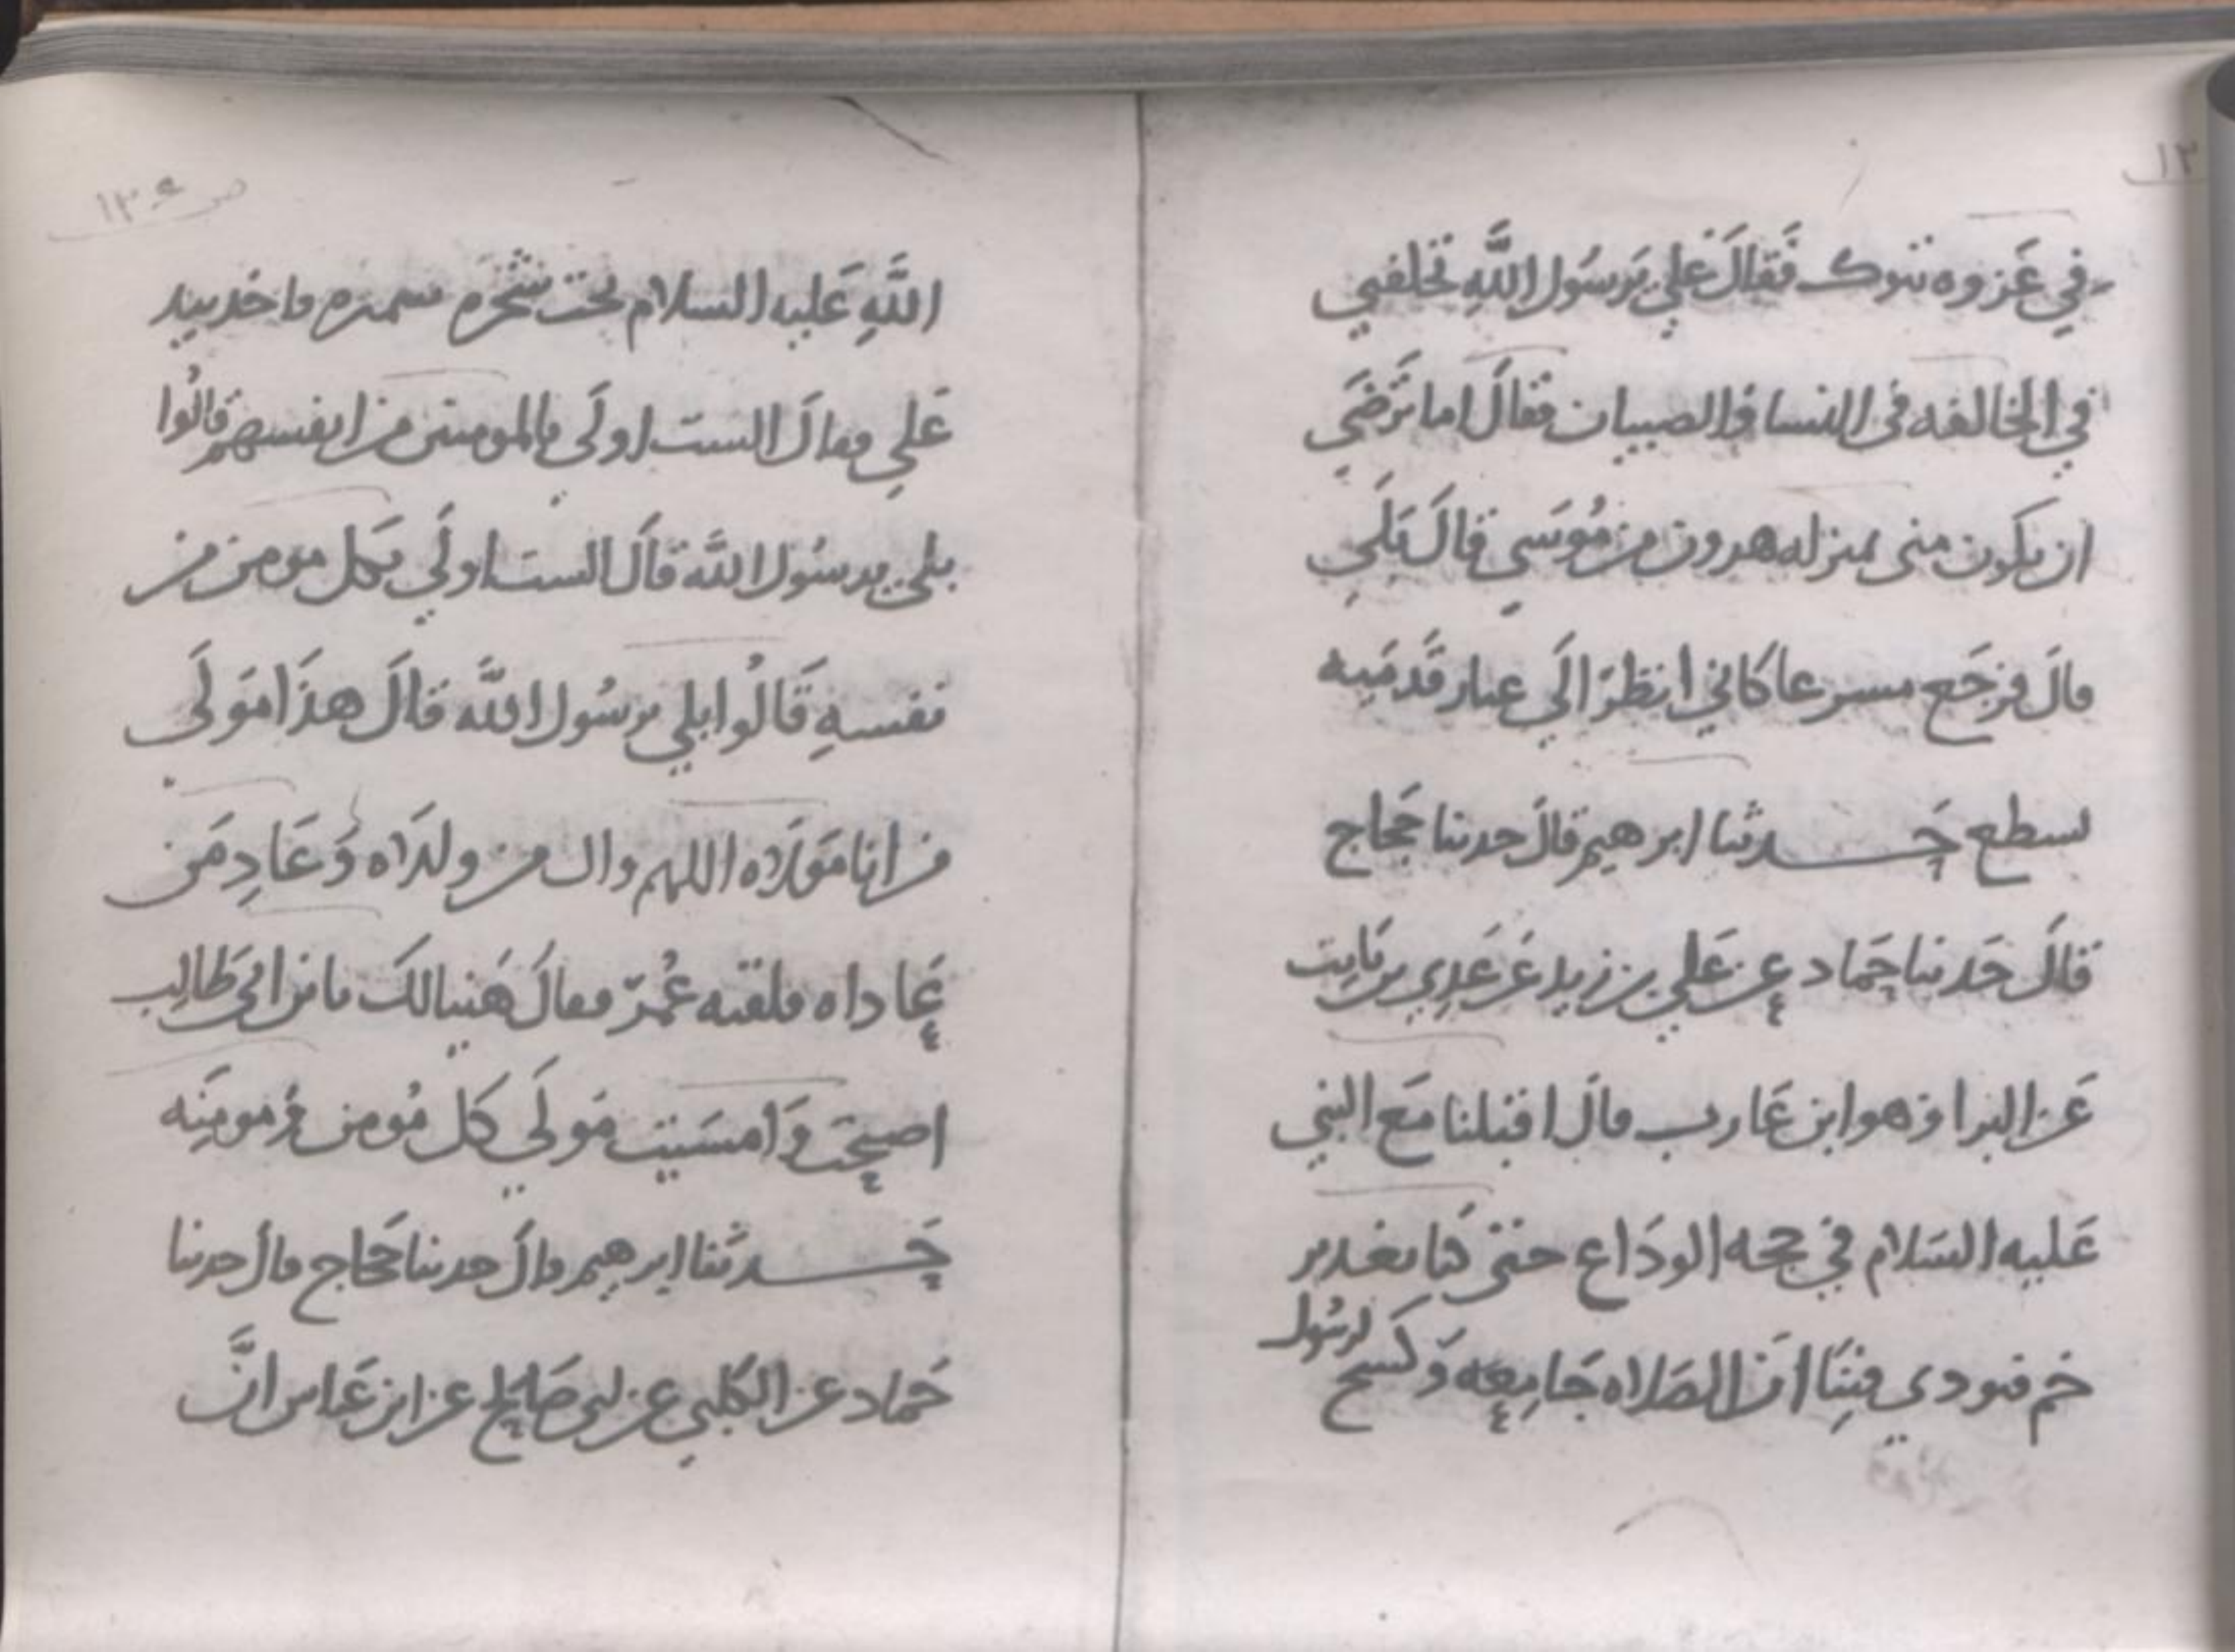 في غزوه تبوك فقال علي يرسول الله تخلفني
في الخالفه في النسا والصبيان فقال اما ترضى
ان يكون مني بمنزله هرون من موسي قال بلي
قال فرجع مسرعا كاني انظر الي غبار قدميه
لسطع حدثنا ابرهيم قال حدثنا حجاج
قال حدثنا حماد عن علي بن زيد عن عدي بن ثابت
عن البرا وهو ابن عازب قال اقبلنا مع النبي
عليه السلام في حجه الوداع حتى كنا بغدير
خم فنودي فينا ان الصلاه جامعه وكسح لرسول
ص ١٣٤
الله عليه السلام تحت شجره سمره فاخذ بيد
علي فقال الست اولي بالمومنين من انفسهم قالوا
بلي يرسول الله قال الست اولي بكل مومن من
نفسه قالوا بلي يرسول الله قال هذا مولي
من انا مولاه اللهم وال من ولاه وعاد من
عاداه فلقيه عمر فقال هنيا لك يابن ابي طالب
اصبحت وامسيت مولي كل مومن ومومنه
حدثنا ابرهيم قال حدثنا حجاج قال حدثنا
حماد عن الكلبي عن ابي صالح عن ابن عباس ان